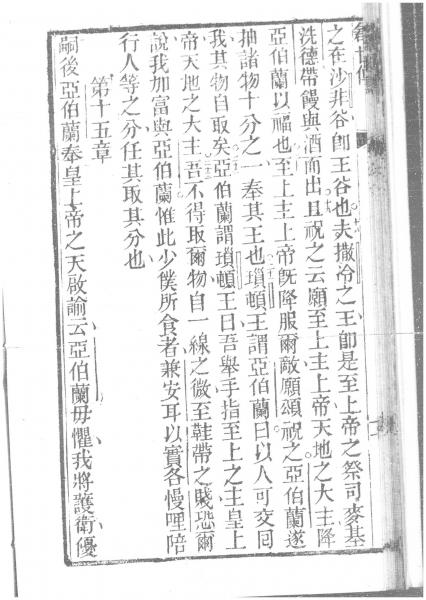 之在沙非谷卽王谷也夫撒冷之王卽是至上帝之祭司麥基
洗德帶饅與酒而出且祝之云願至上主上帝天地之大主降
亞伯蘭以福也至上主上帝旣降服爾敵願頌祝之亞伯蘭遂
抽諸物十分之一奉其王也瑣頓王謂亞伯蘭曰以人可交囘
我其物自取矣亞伯蘭謂瑣頓王曰吾舉手指至上之主皇上
帝天地之大主吾不得取爾物自一線之微至鞋帶之賤恐爾
說我加富與亞伯蘭惟此少僕所食者兼安耳以實各慢哩陪
行人等之分任其取其分也
第十五章
嗣後亞伯蘭奉皇上帝之天啟諭云亞伯蘭毋懼我將護衛優